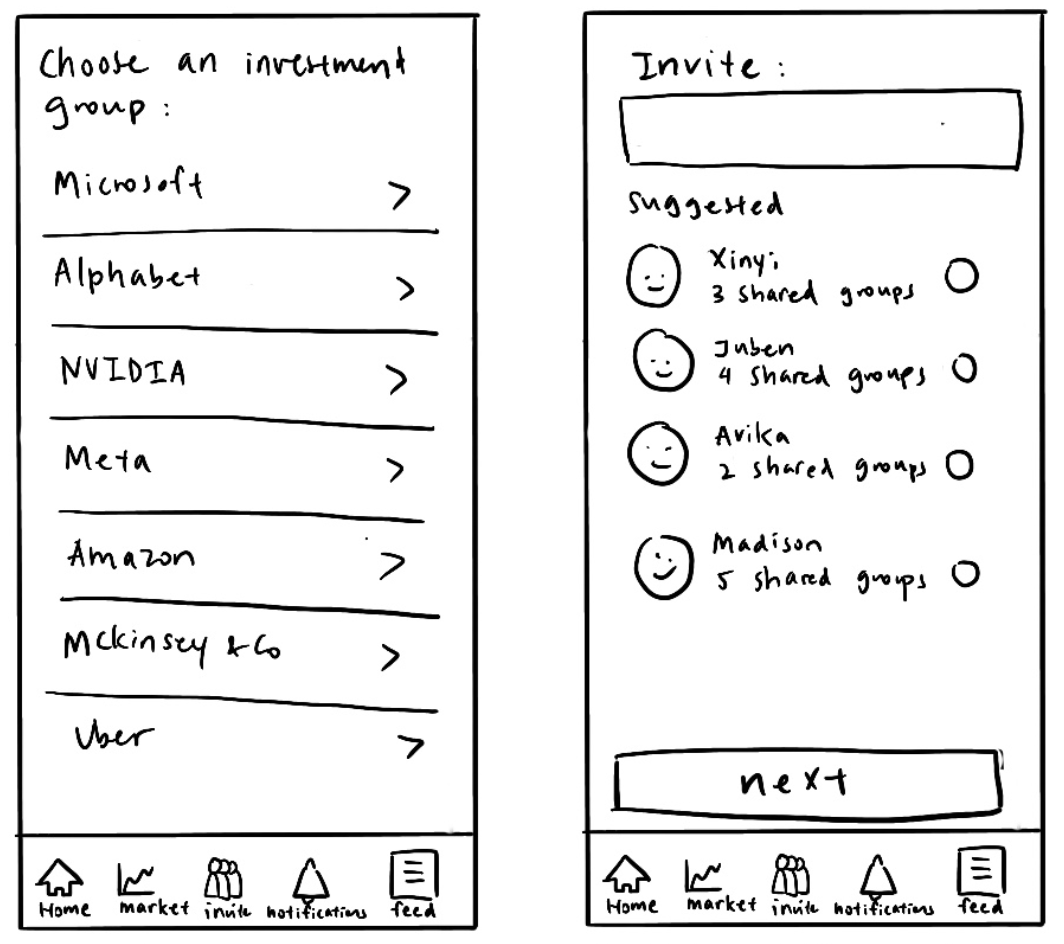 Choose an investment
group :
Microsoft
Alphabet
NVIDIA
Meta
Amazon
Mckinsey & Co
Uber
Home market invite notifications feed
Invite :
suggested
Xinyi
3 shared groups
Juben
4 shared groups
Avika
2 shared groups
Madison
5 shared groups
next
Home market invite notifications feed